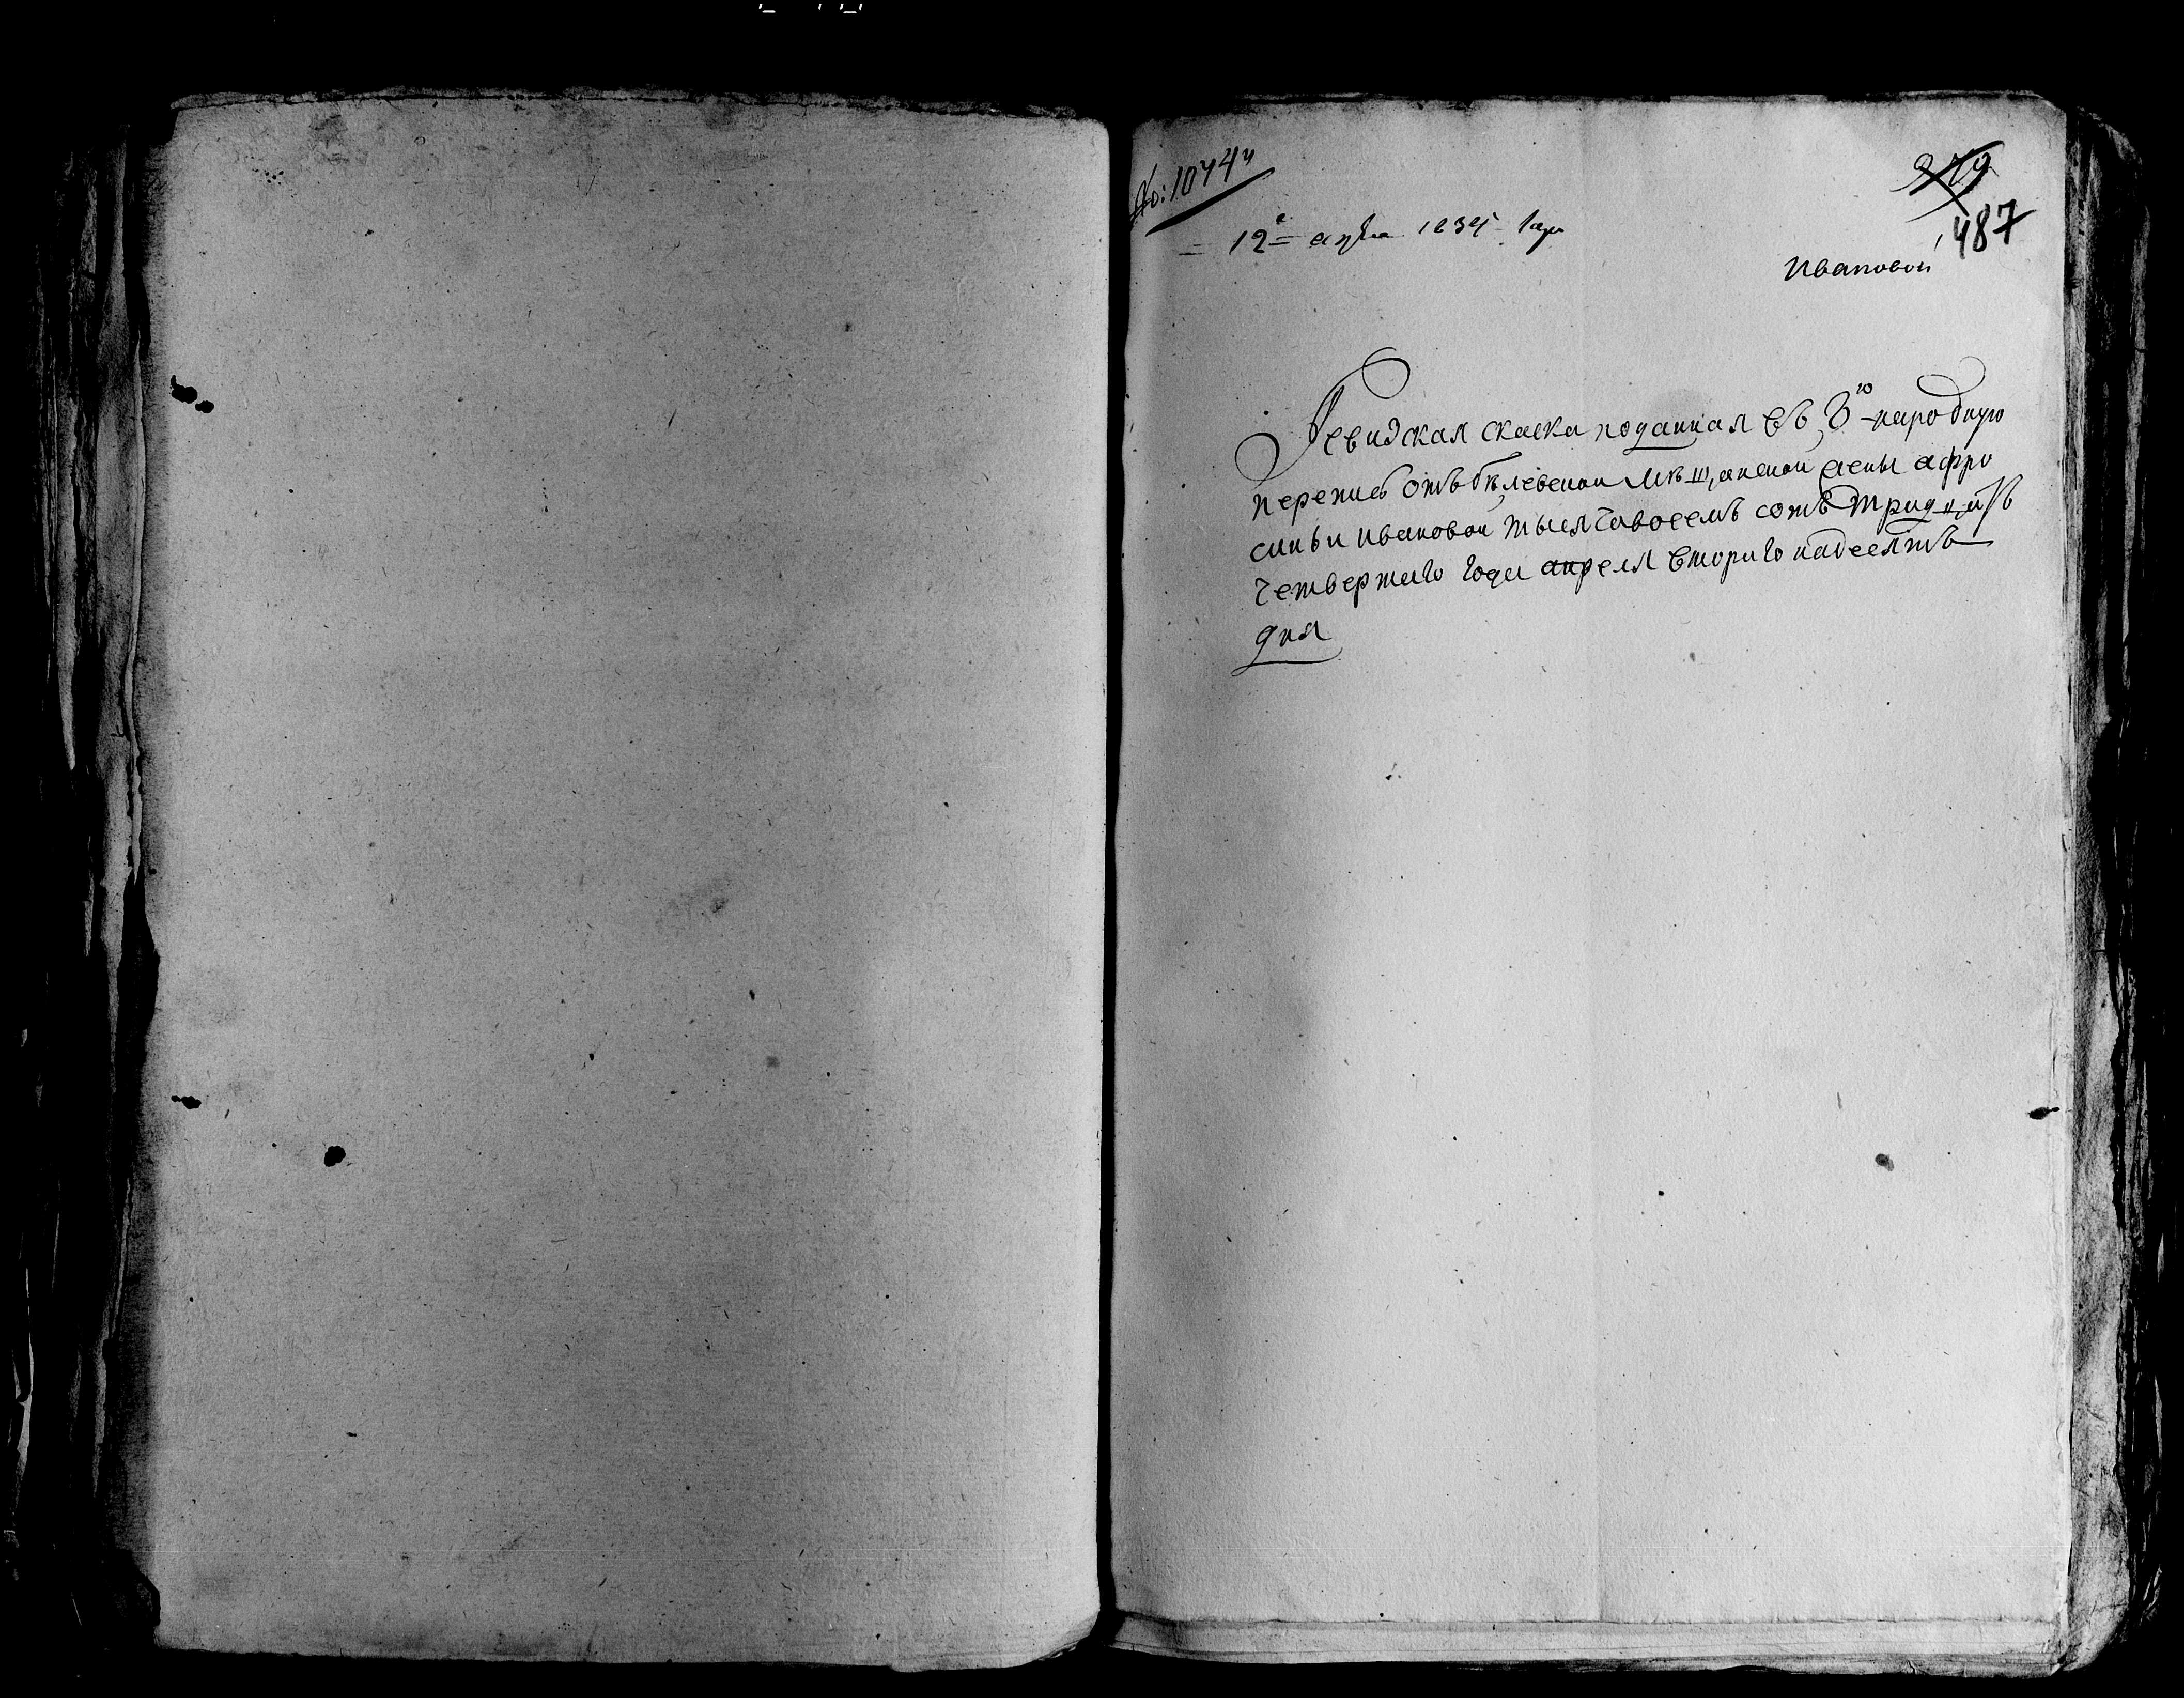 No: 1074й
379
487
= 12е = апреля 1834 года
Ивановой
Ревизская скаска поданная въ 8ю народную
перепись отъ бѣлевской мѣщанской жены афро
синьи ивановой тысяча восемь сотъ тридцать
четвертаго года апреля второго надесять
дня